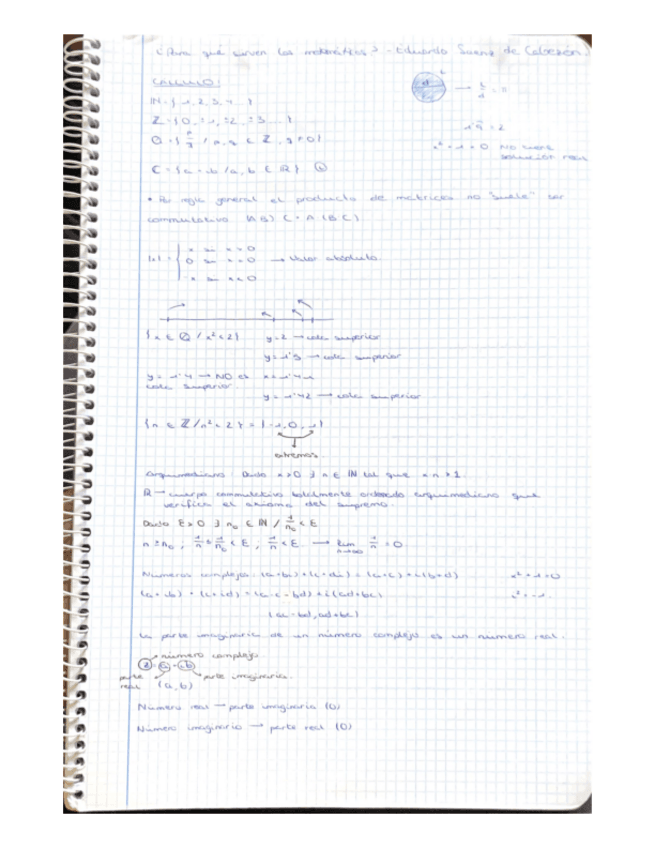 ¿Para qué sirven las matemáticas? - Eduardo Saenz de Cabezón.
CÁLCULO:
IN = { 1, 2, 3, 4 ... }
ℤ = { 0, ±1, ±2, ±3 ... }
Q = { p/q / p, q ∈ ℤ, q ≠ 0 }
C = { a + ib / a, b ∈ IR }
d → L/d = π
x² + 1 = 0 NO tiene solución real
• Por regla general el producto de matrices no "suele" ser
conmutativo (AB) C = A (BC)
|x| = { x si x > 0
0 si x = 0 → valor absoluto
-x si x < 0
{ x ∈ Q / x² < 2 } y = 2 → cota superior
y = 1'5 → cota superior
y = 1'4 → NO es x = 1'41
cota superior
y = 1'42 → cota superior
{ n ∈ ℤ / n² < 2 } = { -1, 0, 1 }
extremos
Arquimediano: Dado x > 0 ∃ n ∈ IN tal que xn > 1.
IR → cuerpo conmutativo totalmente ordenado arquimediano que
verifica el axioma del supremo.
Dado ε > 0 ∃ n₀ ∈ IN / 1/n₀ < ε
n ≥ n₀ ; 1/n ≤ 1/n₀ < ε ; 1/n < ε → lim n→∞ 1/n = 0
Números complejos: (a + bi) + (c + di) = (a + c) + i(b + d) x² + 1 = 0
(a + ib) · (c + id) = (a·c - bd) + i(ad + bc) i² = -1
(ac - bd, ad + bc)
La parte imaginaria de un número complejo es un número real.
número complejo
z = a + ib
parte real parte imaginaria.
(a, b)
Número real → parte imaginaria (0)
Número imaginario → parte real (0)